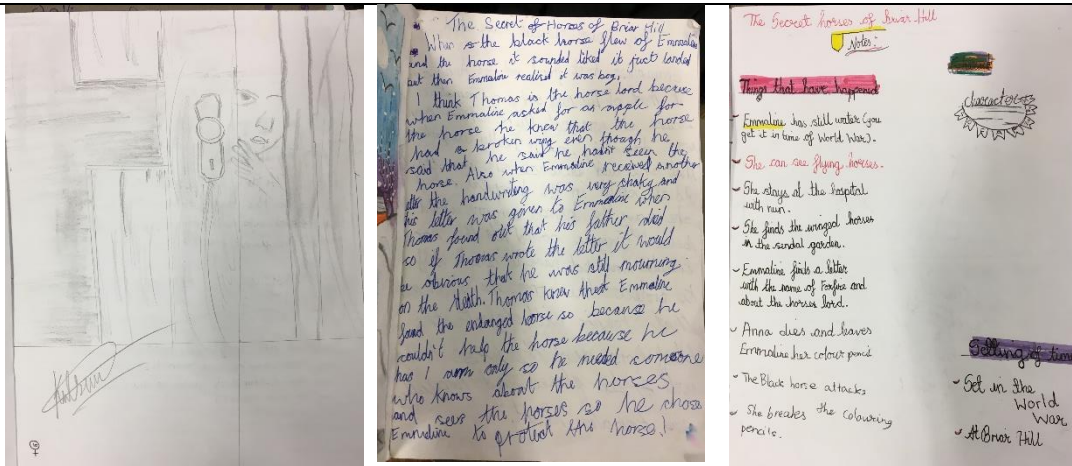 The Secret of Horses of Briar Hill
When the black horse flew of Emmaline
and the horse it sounded liked it just landed
but then Emmaline realised it was boy.
I think Thomas is the horse lord because
when Emmaline asked for as napple for
the horse he knew that the horse
had a broken wing even though he
said that, he said he hadnt seen the
horse. Also when Emmaline received another
letter the handwriting was very shaky and
his letter was given to Emmaline when
Thomas found out that his father died
so if Thomas wrote the letter it would
be obvious that he was still mourning
on the death. Thomas knew that Emmaline
found the endanged horse so because he
couldn't help the horse because he
has 1 arm only so he needed someone
who knows about the horses
and sees the horses so he chose
Emmaline to protect this horse!
The Secret horses of Briar Hill
Notes:
Things that have happened
- Emmaline has still water (you
get it in time of World War).
- She can see flying horses.
- She stays at the hospital
with nun.
- She finds the winged horses
in the sundal garden.
- Emmaline finds a letter
with the name of Foxfire and
about the horses lord.
- Anna dies and leaves
Emmaline her colour pencis
- The Black horse attacks
- She breakes the colouring
pencils.
Characters
Setting of time
- Set in the
World
War
- At Briar Hill